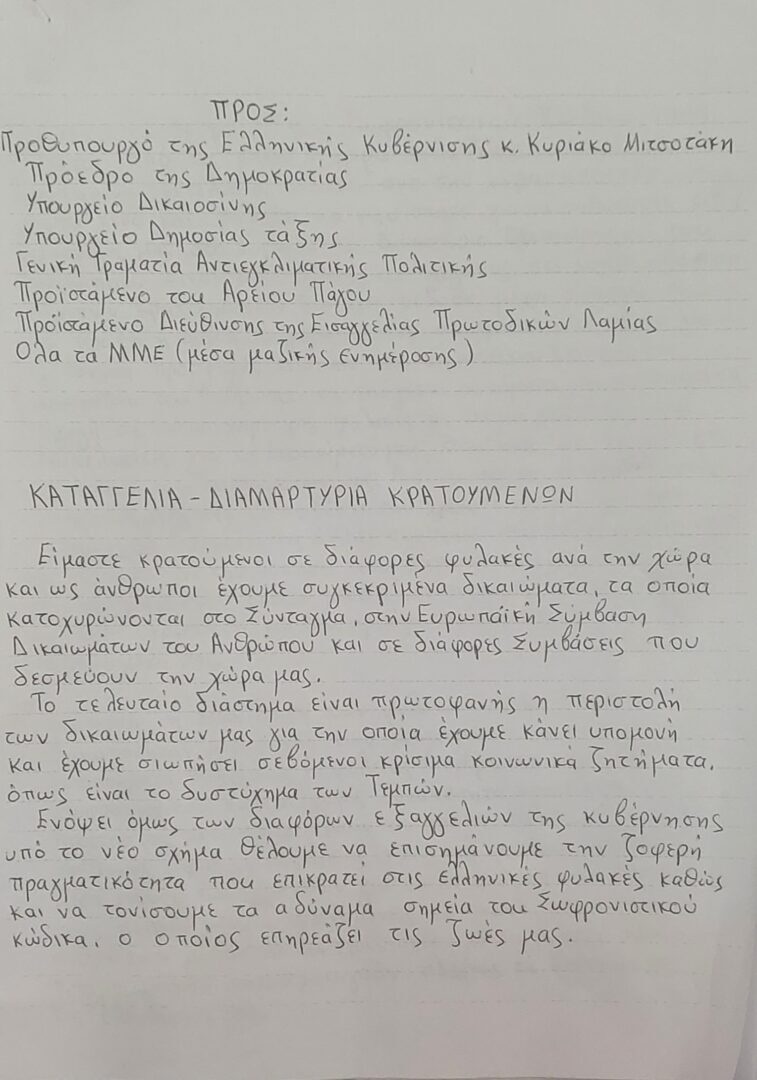 ΠΡΟΣ:
Προθυπουργό της Ελληνικής Κυβέρνισης κ. Κυριάκο Μιτσοτάκη
Πρόεδρο της Δημοκρατίας
Υπουργείο Δικαιοσίνης
Υπουργείο Δημοσίας τάξης
Γενική Γραματία Αντιεγκλιματικής Πολιτικής
Προϊστάμενο του Αρείου Πάγου
Προϊστάμενο Διεύθινσης της Εισαγγελίας Πρωτοδικών Λαμίας
Ολα τα ΜΜΕ (μέσα μαζικής ενημέροσης)
ΚΑΤΑΓΓΕΛΙΑ - ΔΙΑΜΑΡΤΥΡΙΑ ΚΡΑΤΟΥΜΕΝΩΝ
Είμαστε κρατούμενοι σε διάφορες φυλακές ανά την χώρα
και ως άνθρωποι έχουμε συγκεκριμένα δικαιώματα, τα οποία
κατοχυρώνονται στο Σύνταγμα, στην Ευρωπαϊκή Σύμβαση
Δικαιωμάτων του Ανθρώπου και σε διάφορες Συμβάσεις που
δεσμεύουν την χώρα μας.
Το τελευταίο διάστημα είναι πρωτοφανής η περιστολή
των δικαιωμάτων μας για την οποία έχουμε κάνει υπομονή
και έχουμε σιωπήσει σεβόμενοι κρίσιμα κοινωνικά ζητήματα,
όπως είναι το δυστύχημα των Τεμπών.
Ενόψει όμως των διαφόρων εξαγγελιών της κυβέρνησης
υπό το νέο σχήμα θέλουμε να επισημάνουμε την ζοφερή
πραγματικότητα που επικρατεί στις ελληνικές φυλακές καθώς
και να τονίσουμε τα αδύναμα σημεία του Σωφρονιστικού
κώδικα, ο οποίος επηρεάζει τις ζωές μας.